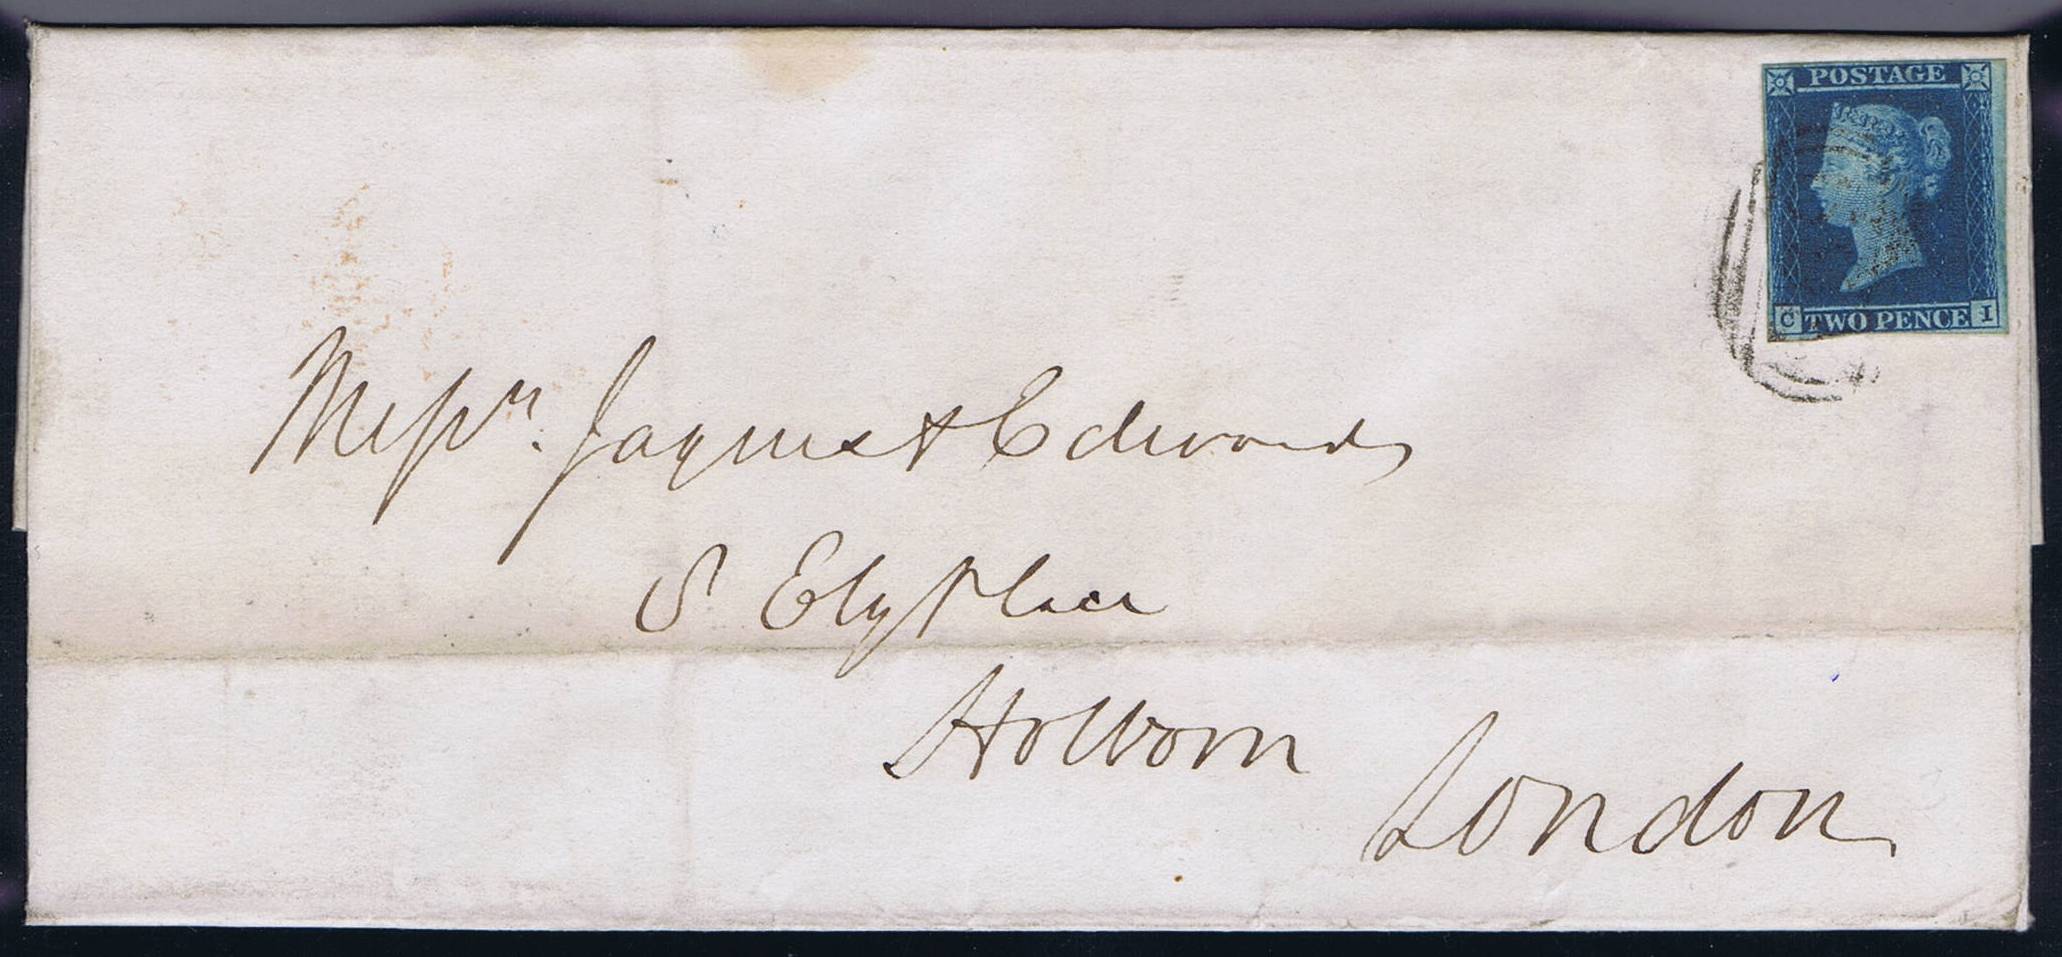 POSTAGE
C TWO PENCE I
Messrs. Jaques & Edwards
8 Ely Place
Holborn
London